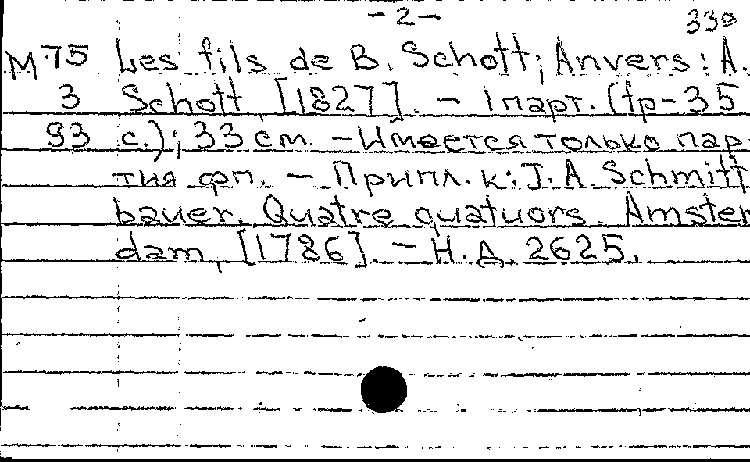 - 2 - 330
М 75 Les fils de B. Schott; Anvers: A.
3 Schott, [1827]. - 1 парт. (fp-35
93 с.); 33 cm. - Имеется только пар-
тия фп. - Припл. к: J. A. Schmitt
bauer. Quatre quatuors. Amster
dam, [1786]. - Н.Д. 2625.